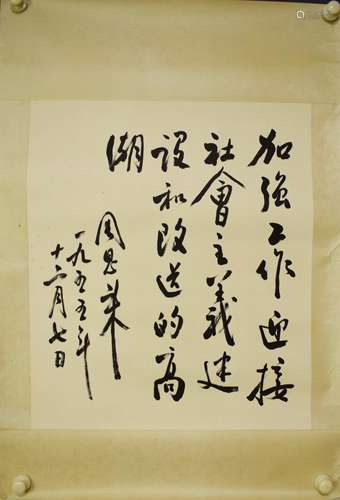 加強工作迎接
社會主義建
設和改造的高
潮
周恩来
一九五五年
十二月七日